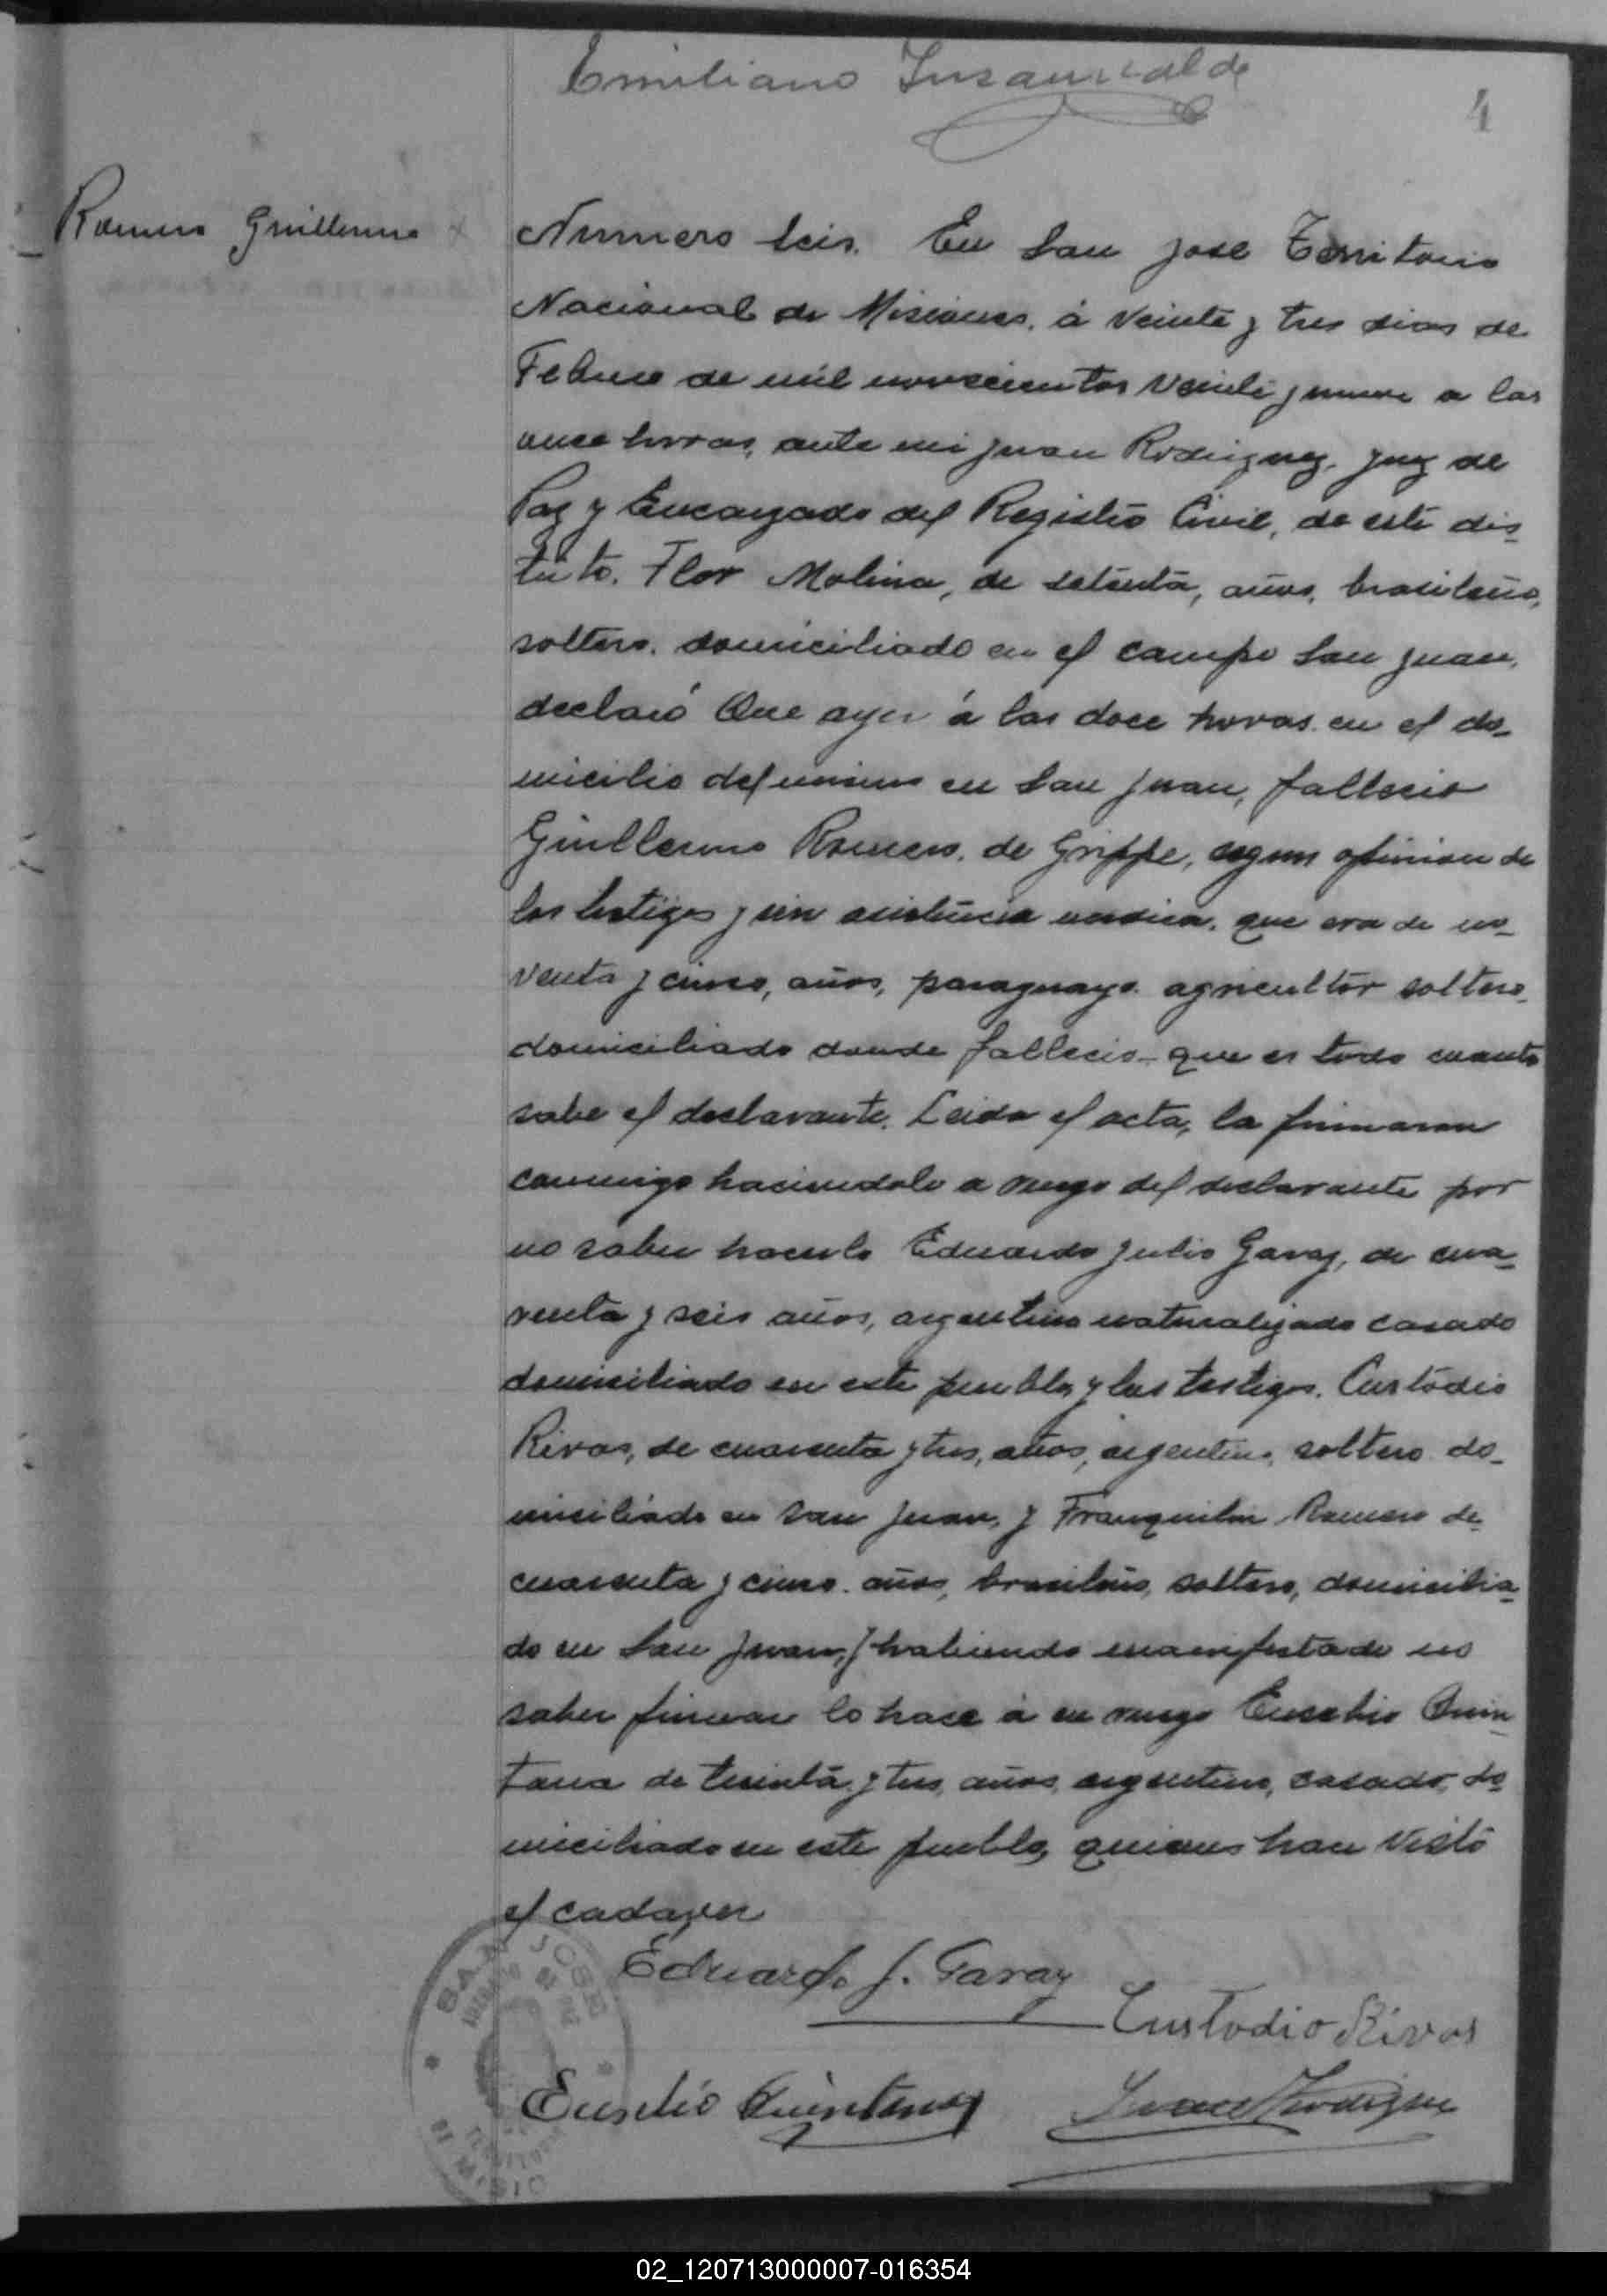 Emiliano Insaurralde
4
Romero Guillermo
Numero seis. En San José Territorio
Nacional de Misiones, á veinte y tres dias de
Febrero de mil novecientos veinte y nueve a las
once horas, ante mi Juan Rodriguez, Juez de
Paz y Encargado del Registro Civil, de este dis-
trito. Flor Molina, de setenta, años, brasileño,
soltero, domiciliado en el campo San Juan,
declaró Que ayer á las doce horas en el do-
micilio del mismo en San Juan, fallecio
Guillermo Romero, de Grippe, segun opinion de
los testigos y sin asistencia medica, que era de no-
venta y cinco, años, paraguayo agricultor soltero
domiciliado donde fallecio que es todo cuanto
sabe el declarante. Leida el acta, la firmaron
conmigo haciendolo a ruego del declarante por
no saber hacerlo Eduardo Julio Garay, de cua-
renta y seis años, argentino naturalizado casado
domiciliado en este pueblo, y los testigos. Custodio
Rivas, de cuarenta y tres, años, argentino, soltero do-
miciliado en San Juan, y Tranquilin Romero de
cuarenta y cinco años, brasileño, soltero, domicilia-
do en San Juan, y habiendo manifestado no
saber firmar lo hace á su ruego Eusebio Quin-
tana de treinta y tres, años, argentino, casado, do-
miciliado en este pueblo, quienes han visto
el cadaver
Eduardo J. Garay
Custodio Rivas
Eusebio Quintana
Juan Rodriguez
SAN JOSE
02_120713000007-016354